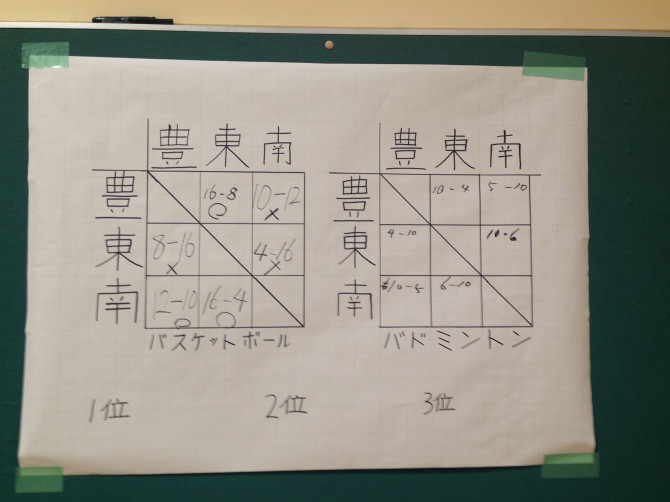 豊 東 南
豊 16-8 ○ 10-12 ×
東 8-16 × 4-16 ×
南 12-10 ○ 16-4 ○
バスケットボール
豊 東 南
豊 10-4 5-10
東 4-10 10-6
南 10-5 6-10
バドミントン
1位 2位 3位